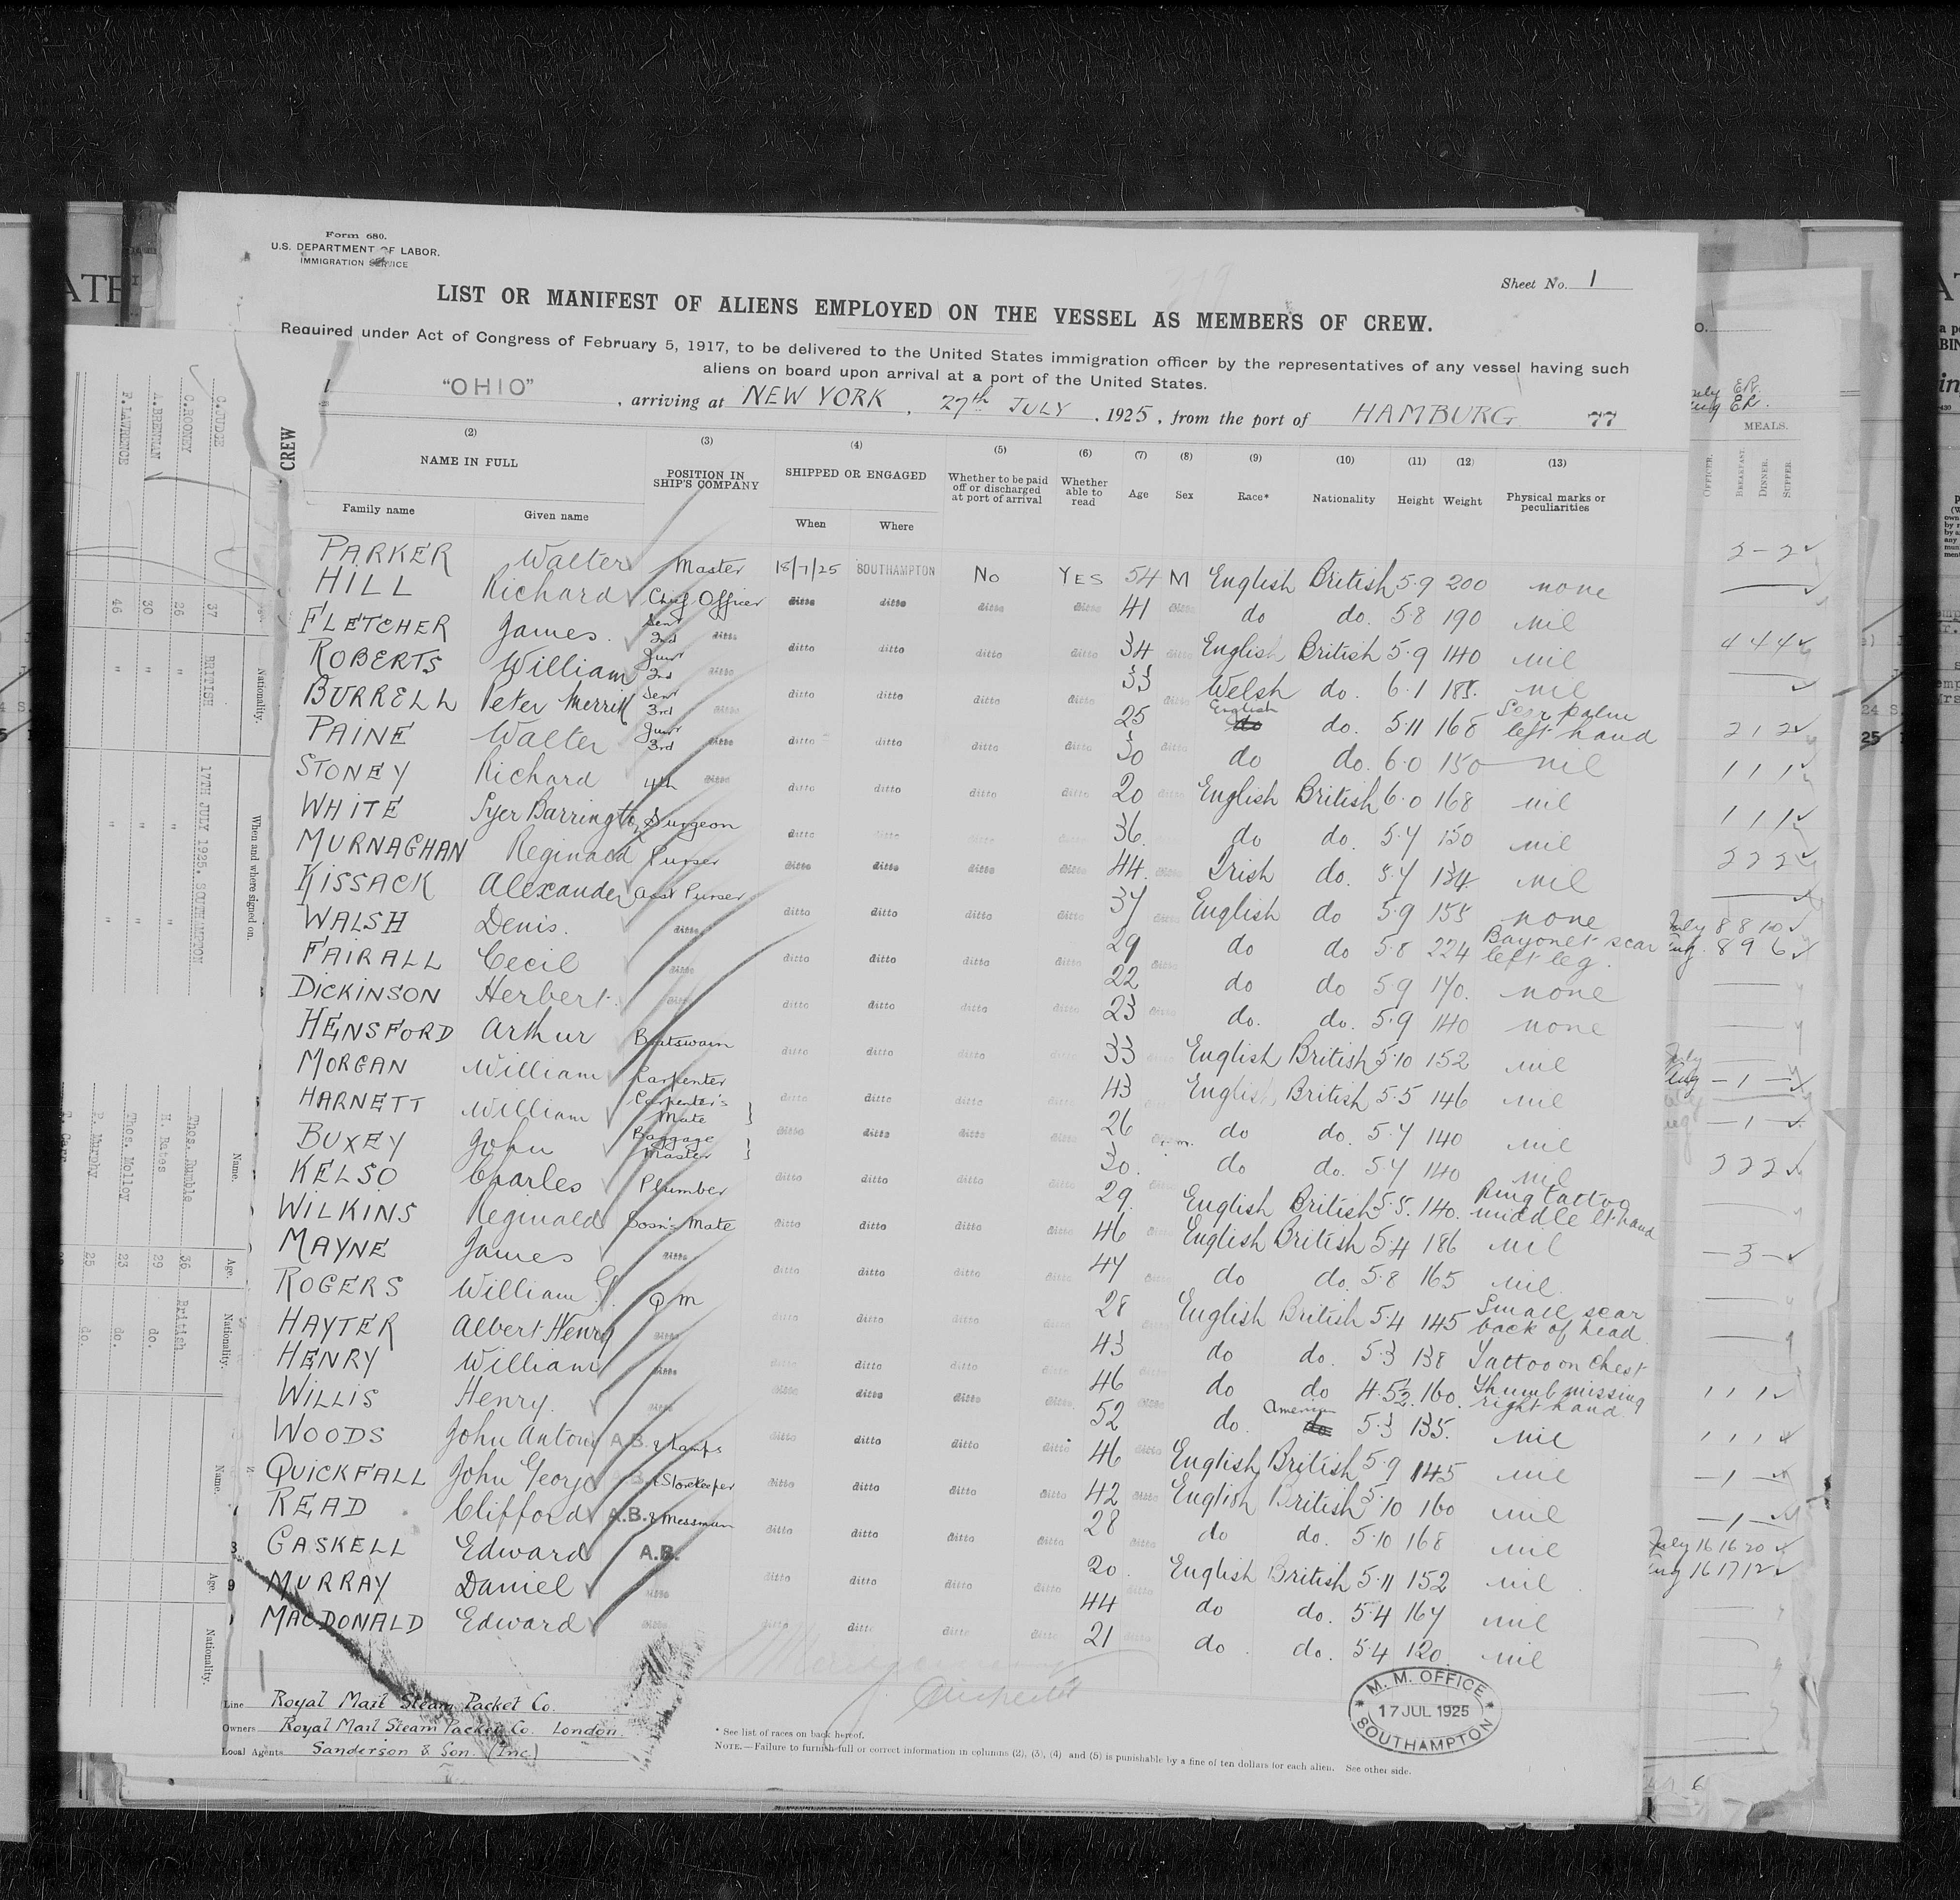 Form 680.
U.S. DEPARTMENT OF LABOR.
IMMIGRATION SERVICE
Sheet No. 1
LIST OR MANIFEST OF ALIENS EMPLOYED ON THE VESSEL AS MEMBERS OF CREW.
Required under Act of Congress of February 5, 1917, to be delivered to the United States immigration officer by the representatives of any vessel having such
aliens on board upon arrival at a port of the United States.
"OHIO", arriving at NEW YORK, 27th JULY, 1925, from the port of HAMBURG 77
CREW
(2) (3) (4) (5) (6) (7) (8) (9) (10) (11) (12) (13)
NAME IN FULL POSITION IN SHIP'S COMPANY SHIPPED OR ENGAGED Whether to be paid off or discharged at port of arrival Whether able to read Age Sex Race* Nationality Height Weight Physical marks or peculiarities
Family name Given name When Where
PARKER Walter Master 18/7/25 SOUTHAMPTON No YES 54 M English British 5.9 200 none
HILL Richard Chief Officer ditto ditto ditto ditto 41 ditto do do. 5.8 190 nil
FLETCHER James. Senr 2nd ditto ditto ditto ditto ditto 34 ditto English British 5.9 140 nil
ROBERTS William Junr 2nd ditto ditto ditto ditto ditto 33 ditto Welsh do. 6.1 185. nil
BURRELL Peter Merrill Senr 3rd ditto ditto ditto ditto ditto 25 ditto English do. 5.11 168 Scar palm left hand
PAINE Walter Junr 3rd ditto ditto ditto ditto ditto 30 ditto do do. 6.0 150 nil
STONEY Richard 4th ditto ditto ditto ditto ditto 20 ditto English British 6.0 168 nil
WHITE Syer Barrington Surgeon ditto ditto ditto ditto 36. do do. 5.7 150 nil
MURNAGHAN Reginald Purser ditto ditto ditto ditto 44. ditto Irish do. 5.7 134 nil
KISSACK Alexander Asst Purser ditto ditto ditto ditto 37 ditto English do 5.9 155 none
WALSH Denis. ditto ditto ditto ditto ditto 29 ditto do do 5.8 224 Bayonet scar left leg.
FAIRALL Cecil ditto ditto ditto ditto ditto 22 do do 5.9 170. none
DICKINSON Herbert. ditto ditto ditto ditto ditto 23 ditto do. do. 5.9 140 none
HENSFORD Arthur Boatswain ditto ditto ditto ditto 33 English British 5.10 152 nil
MORGAN William Carpenter ditto ditto ditto ditto 43 English British 5.5 146 nil
HARNETT William Carpenter's Mate ditto ditto ditto ditto 26 do do. 5.7 140 nil
BUXEY John Baggage Master ditto ditto ditto ditto 30. do do. 5.7 140 nil
KELSO Charles Plumber ditto ditto ditto ditto 29. English British 5.5. 140. Ring tattoo middle lt hand
WILKINS Reginald Bosn's Mate ditto ditto ditto ditto 46 ditto English British 5.4 186 nil
MAYNE James ditto ditto ditto ditto ditto 47 ditto do do. 5.8 165 nil.
ROGERS William G. Q M ditto ditto ditto ditto 28 ditto English British 5.4 145 Small scar back of head.
HAYTER Albert Henry ditto ditto ditto ditto ditto 43 do do. 5.3 138 Tattoo on chest
HENRY William ditto ditto ditto ditto ditto 46 ditto do do 4.5½. 160. Thumb missing right hand.
WILLIS Henry. ditto ditto ditto ditto ditto 52 ditto do. American 5.3 135. nil
WOODS John Antony A.B. & Lamps ditto ditto ditto ditto 46 ditto English British 5.9 145 nil
QUICKFALL John George A.B. & Storekeeper ditto ditto ditto ditto 42 ditto English British 5.10 160 nil
READ Clifford A.B. & Messman ditto ditto ditto ditto 28 ditto do do. 5.10 168 nil
GASKELL Edward A.B. ditto ditto ditto ditto 20. ditto English British 5.11 152 nil
MURRAY Daniel ditto ditto ditto ditto ditto 44 do do. 5.4 167 nil
MACDONALD Edward ditto ditto ditto ditto ditto 21 ditto do. do. 5.4 120. nil
Line Royal Mail Steam Packet Co.
Owners Royal Mail Steam Packet Co. London.
Local Agents Sanderson & Son. (Inc)
* See list of races on back hereof.
NOTE.—Failure to furnish full or correct information in columns (2), (3), (4) and (5) is punishable by a fine of ten dollars for each alien. See other side.
M. M. OFFICE
17 JUL 1925
SOUTHAMPTON
C. JUDIE 37 BRITISH 17TH JULY 1925. SOUTHAMPTON
C. ROONEY 26 " "
A. BRENNAN 30 " "
F. LAWRENCE 46 " "
Nationality. When and where signed on.
Name. Age. Nationality.
Thos. Rumble 36 British
H. Bates 29 do.
Thos. Molloy 23 do.
P. Murphy 25 do.
Name. Age Nationality.
MEALS.
OFFICER. BREAKFAST. DINNER. SUPPER.
2 - 2
4 4 4
2 1 2
1 1 1
1 1 1
2 2 2
July 8 8 10
Aug. 8 9 6
Aug - 1 -
- 1 -
2 2 2
- 3 -
1 1 1
1 1 1
- 1 -
- 1 -
July 16 16 20
Aug 16 17 12